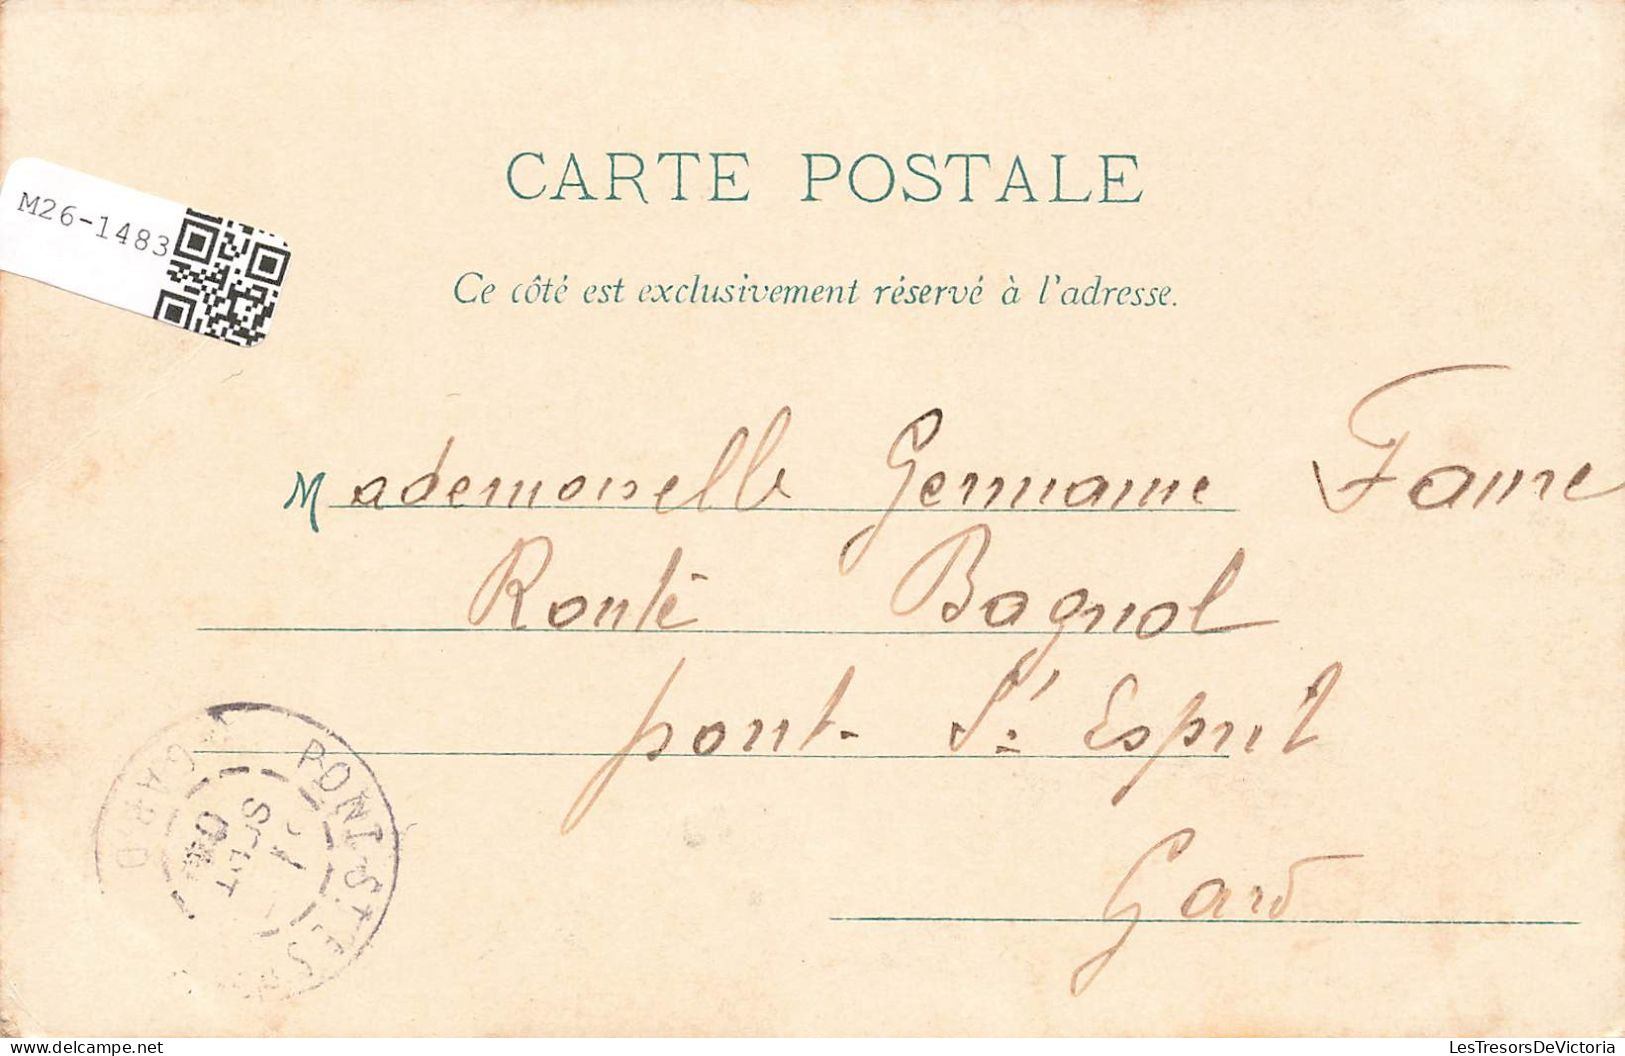 CARTE POSTALE
M26-1483
Ce côté est exclusivement réservé à l'adresse.
Mademoiselle Germaine Faure
Route Bagnol
pont St Esprit
Gard
PONT-ST-ESPRIT
GARD
SEPT
Delcampe.net
LesTresorsDeVictoria